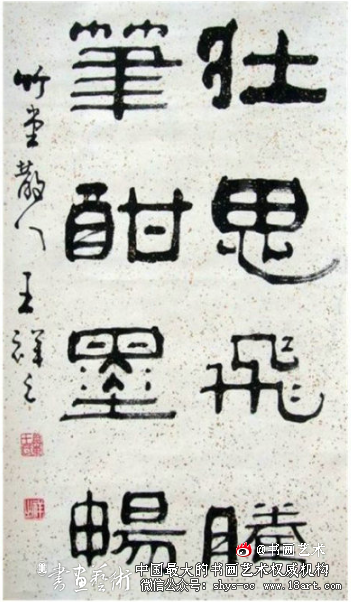 壯思飛騰
筆酣墨暢
竹堂散人王祥之
@书画艺术
書畫藝術
中国最大的书画艺术权威机构
微信公众号：shys-cc www.18art.com